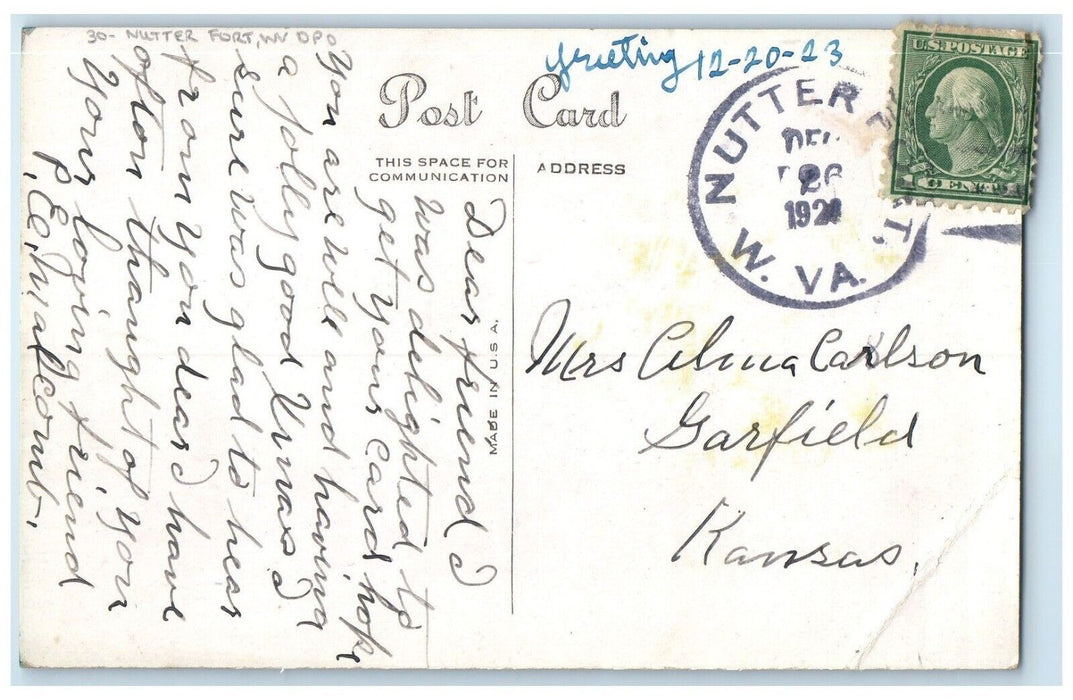 30- NUTTER FORT, WV DPO
greeting 12-20-23
Post Card
THIS SPACE FOR
COMMUNICATION
ADDRESS
MADE IN U.S.A.
U.S. POSTAGE
1 CENT 1
NUTTER FORT,
DEC
1921
W. VA.
Dear friend I
was delighted to
get your card hope
you are well and having
a jolly good Xmas I
sure was glad to hear
from you dear I have
ofton thaught of you
your loving friend
Mrs Alma Carlson
Garfield
Kansas,